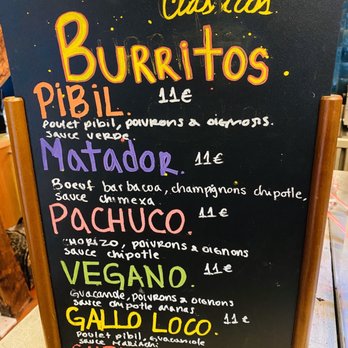 Clásicos
BURRITOS
PIBIL. 11€
Poulet pibil, poivrons & oignons.
sauce verde.
MATADOR. 11€
Boeuf barbacoa, champignons chipotle,
sauce chimexa.
PACHUCO. 11€
CHORIZO, poivrons & oignons
sauce chipotle
VEGANO. 11€
Guacamole, poivrons & oignons
sauce chipotle
GALLO LOCO. 11€
Poulet pibil, guacamole
sauce Mariachi